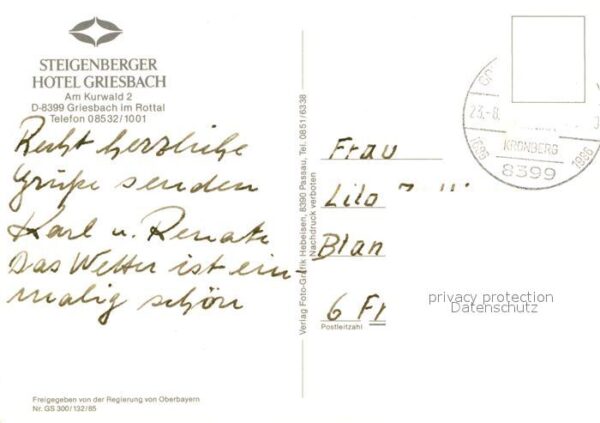 STEIGENBERGER
HOTEL GRIESBACH
Am Kurwald 2
D-8399 Griesbach im Rottal
Telefon 08532/1001
Recht herzliche
Grüße senden
Karl u. Renate
Das Wetter ist ein-
malig schön
Freigegeben von der Regierung von Oberbayern
Nr. GS 300/132/85
Verlag Foto-Grafik Hebeisen, 8390 Passau, Tel. 0851/6338
Nachdruck verboten
Frau
Lilo
Blan
6 Fr
Postleitzahl
23.-8.
KRONBERG
1686 1986
8399
privacy protection
Datenschutz